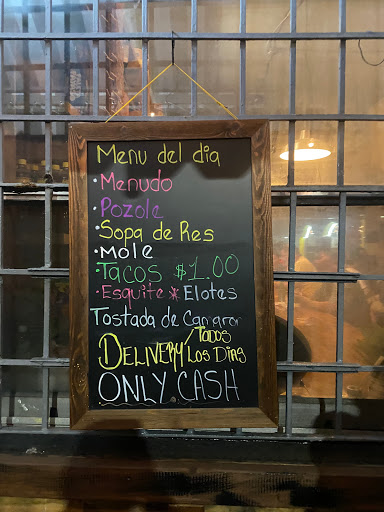 Menu del dia
·Menudo
·Pozole
·Sopa de Res
·Mole
·Tacos $1.00
·Esquite * Elotes
Tostada de
DELIVERY/TODOS
LOS DIAS
ONLY CASH